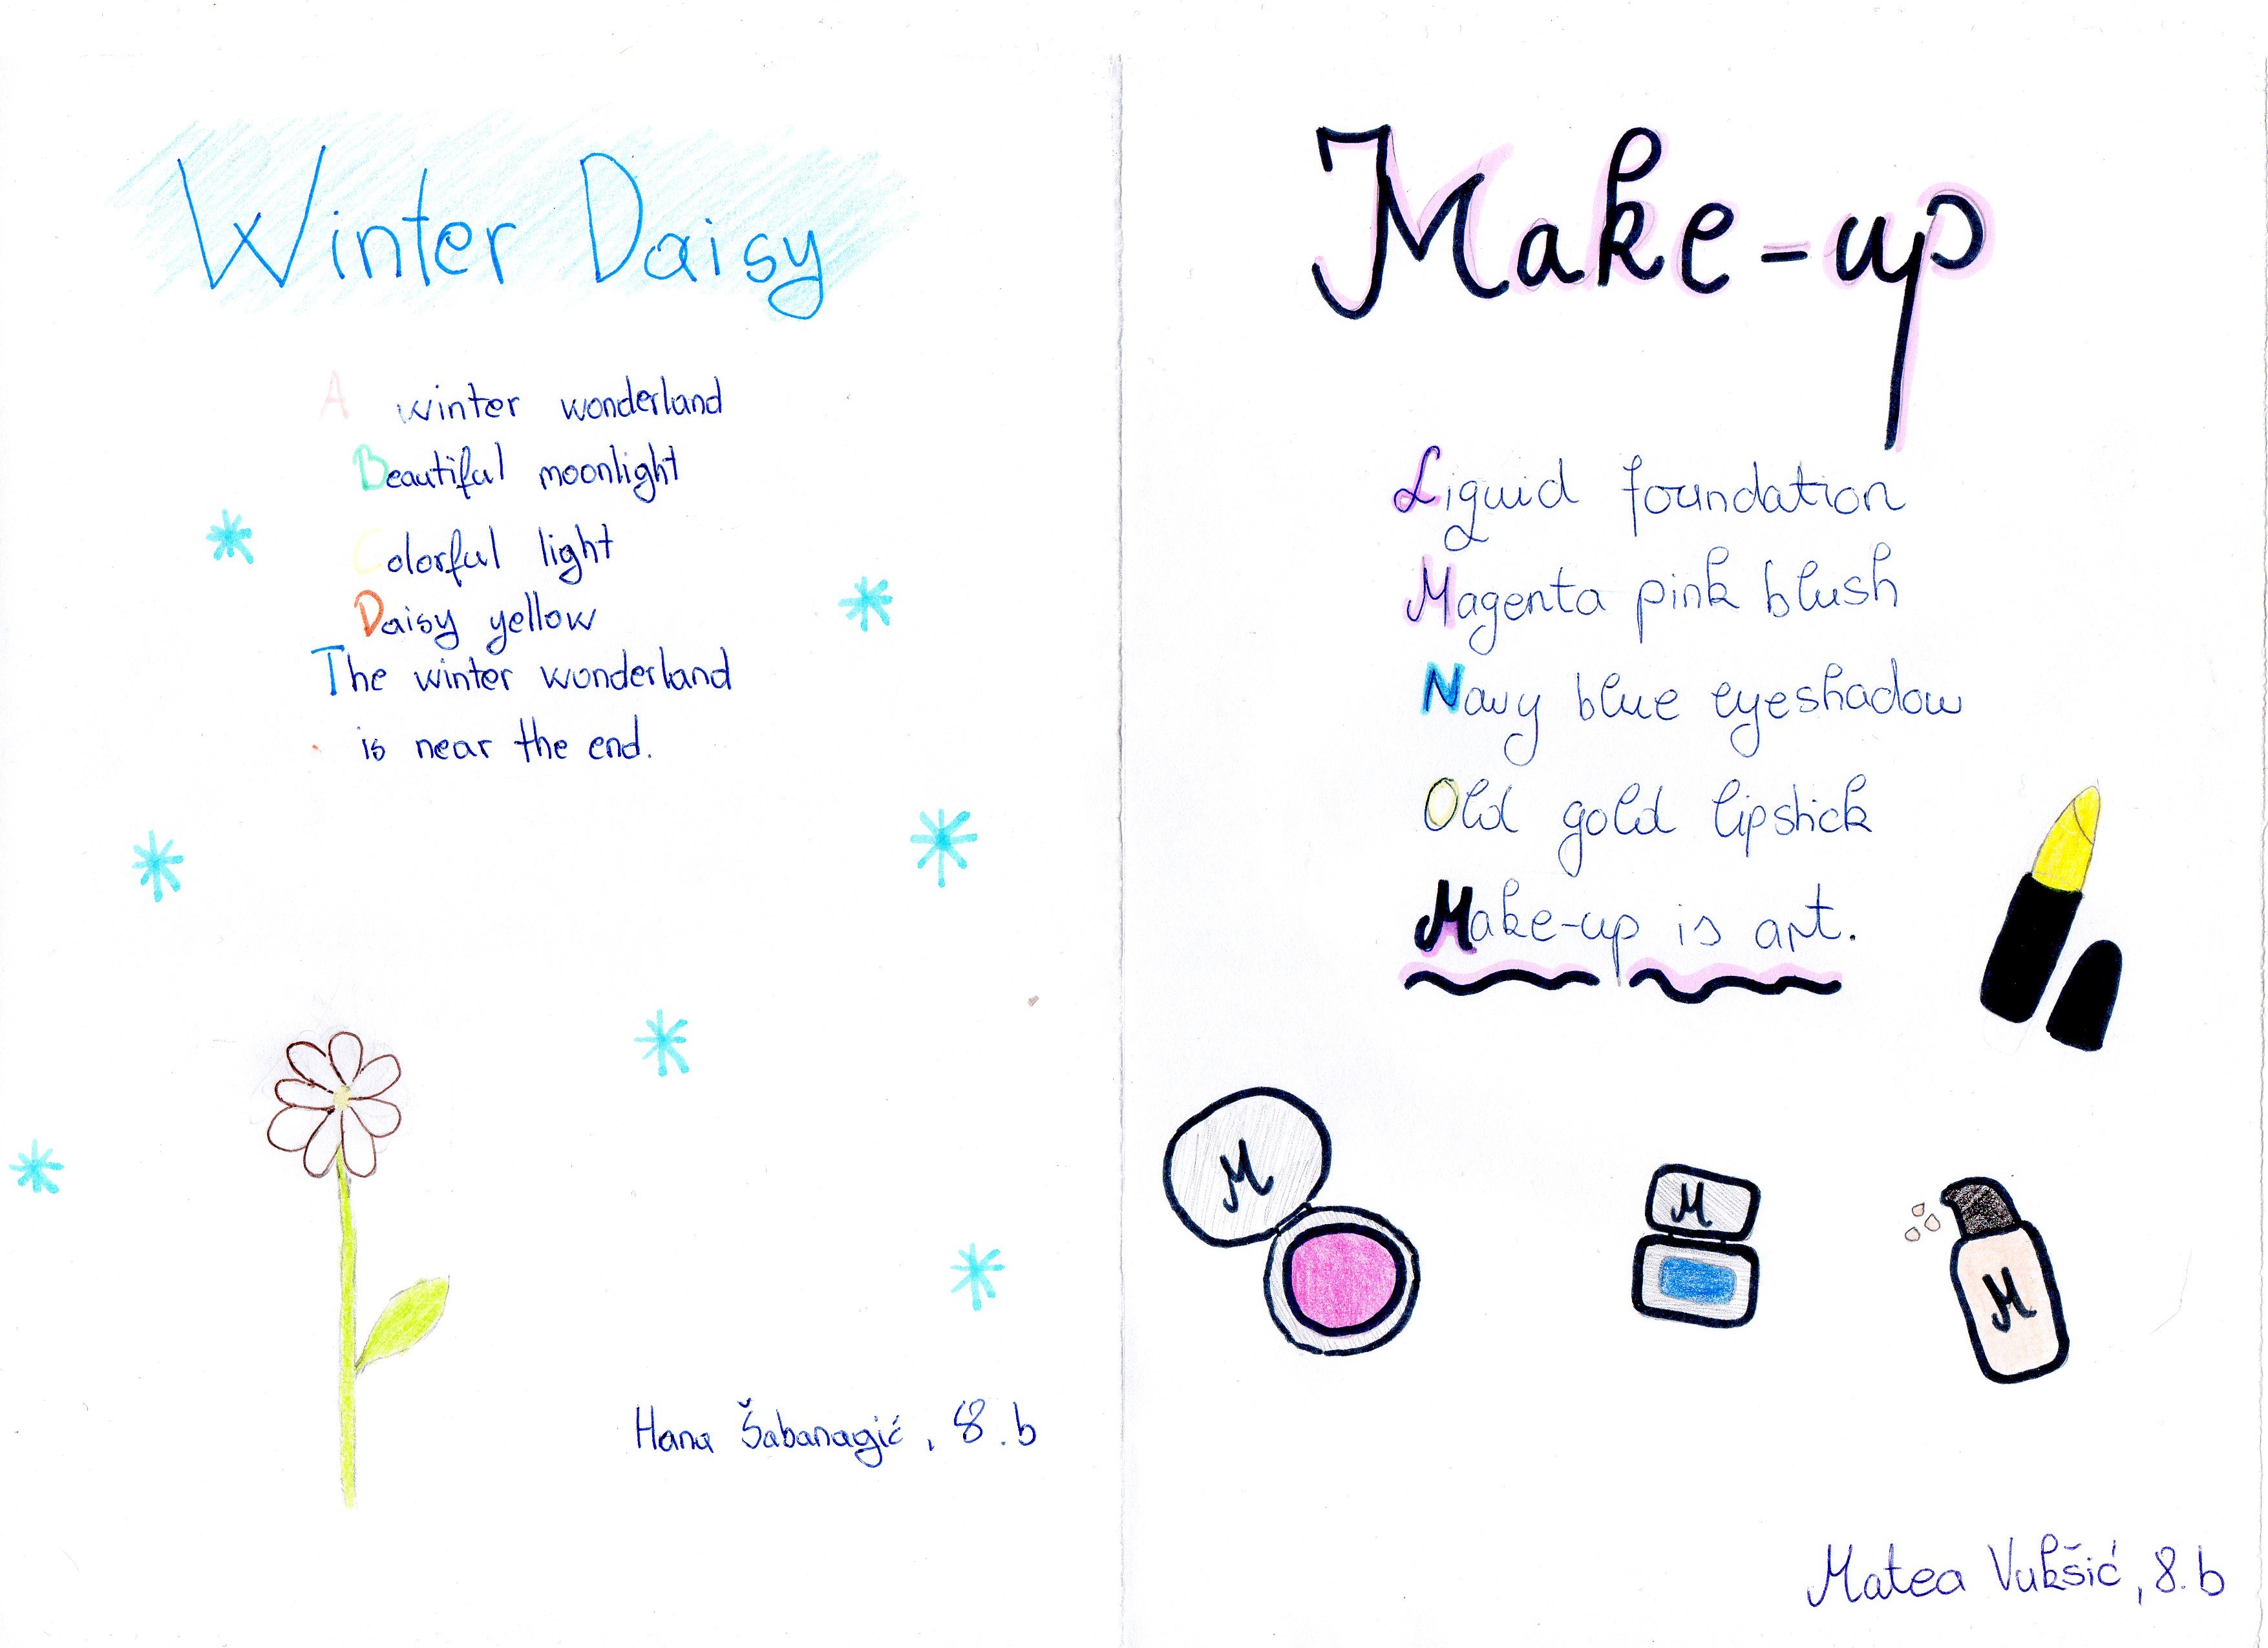 Winter Daisy
A winter wonderland
Beautiful moonlight
Colorful light
Daisy yellow
The winter wonderland
is near the end.
Hana Šabanagić, 8.b
Make-up
Liquid foundation
Magenta pink blush
Navy blue eyeshadow
Old gold lipstick
Make-up is art.
M
M
M
Matea Vukšić, 8.b